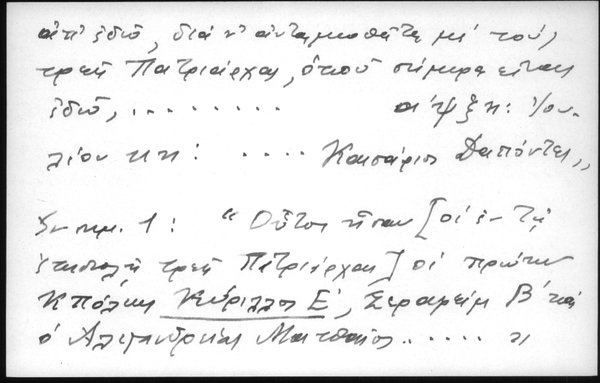 ἀπ' ἐδῶ, διὰ ν' ἀνταμωθῆτε μὲ τοὺς
τρεῖς Πατριάρχας, ὁποῦ σήμερα εἶναι
ἐδῶ, ......... αψξη: Ἰου-
λίου κη: .... Καισάριος Δαπόντες,,
Ἐν σημ. 1: "Οὗτοι ἦσαν [οἱ ἐν τῇ
ἐπιστολῇ τρεῖς Πατριάρχαι] οἱ πρώην
Κπόλεως Κύριλλος Ε', Σεραφεὶμ Β' καὶ
ὁ Ἀλεξανδρείας Ματθαῖος..... "